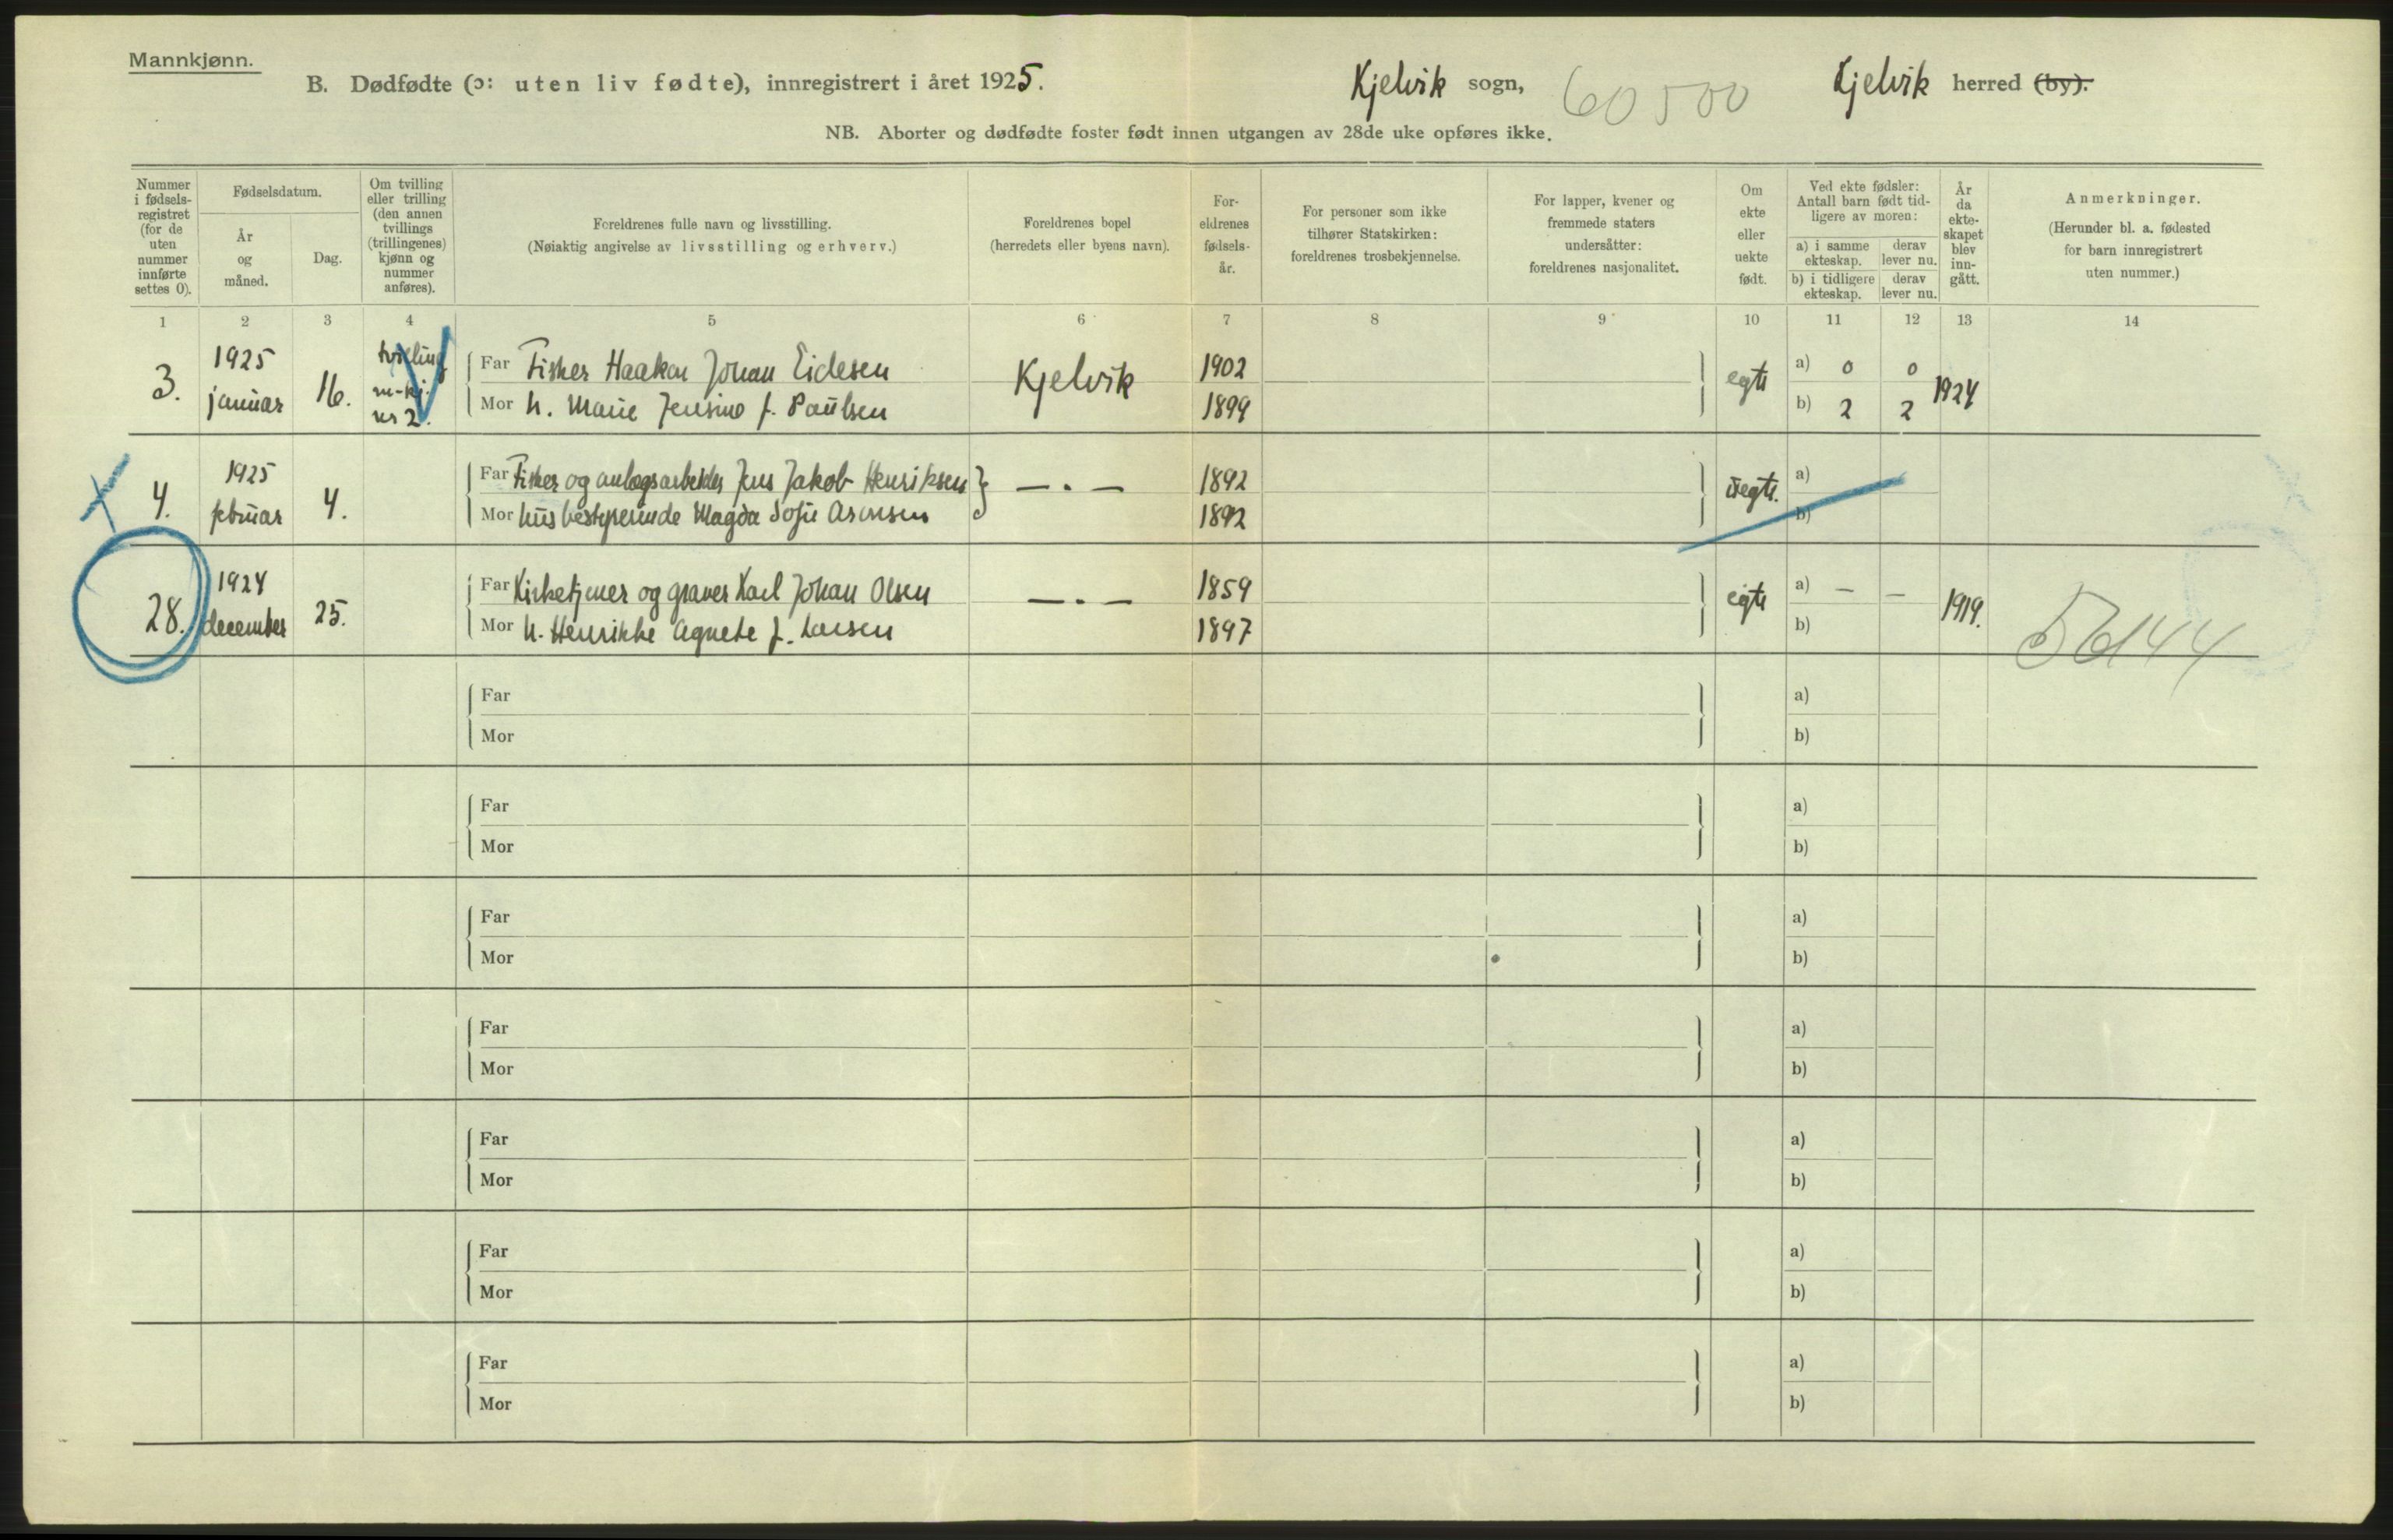 Mannkjønn.
B. Dødfødte (ɔ: uten liv fødte), innregistrert i året 1925. Kjelvik sogn, 60500 Kjelvik herred (by).
NB. Aborter og dødfødte foster født innen utgangen av 28de uke opføres ikke.
Nummer i fødsels-registret (for de uten nummer innførte settes 0).
Fødselsdatum.
År og måned.
Dag.
Om tvilling eller trilling (den annen tvillings (trillingenes) kjønn og nummer anføres).
Foreldrenes fulle navn og livsstilling.
(Nøiaktig angivelse av livsstilling og erhverv.)
Foreldrenes bopel
(herredets eller byens navn).
For-eldrenes fødsels-år.
For personer som ikke tilhører Statskirken: foreldrenes trosbekjennelse.
For lapper, kvener og fremmede staters undersåtter: foreldrenes nasjonalitet.
Om ekte eller uekte født.
Ved ekte fødsler: Antall barn født tid-ligere av moren:
a) i samme ekteskap.
derav lever nu.
b) i tidligere ekteskap.
derav lever nu.
År da ekte-skapet blev inn-gått.
Anmerkninger.
(Herunder bl. a. fødested for barn innregistrert uten nummer.)
1 2 3 4 5 6 7 8 9 10 11 12 13 14
3. 1925 januar 16. tvilling m-kj. nr 2.
Far Fisker Haakon Johan Eidesen Kjelvik 1902 egte a) 0 0 1924
Mor h. Marie Jensine f. Paulsen 1899 b) 2 2
4. 1925 februar 4.
Far Fisker og anlægsarbeider Jens Jakob Henriksen — . — 1892 uegte. a)
Mor husbestyrerinde Magda Sofie 1892 b)
28. 1924 december 25.
Far Kirketjener og graver Karl Johan Olsen — . — 1859 egte a) — — 1919.
Mor h. Henrikke Agnete f. Larsen 1897 b)
56144
Far a)
Mor b)
Far a)
Mor b)
Far a)
Mor b)
Far a)
Mor b)
Far a)
Mor b)
Far a)
Mor b)
Far a)
Mor b)